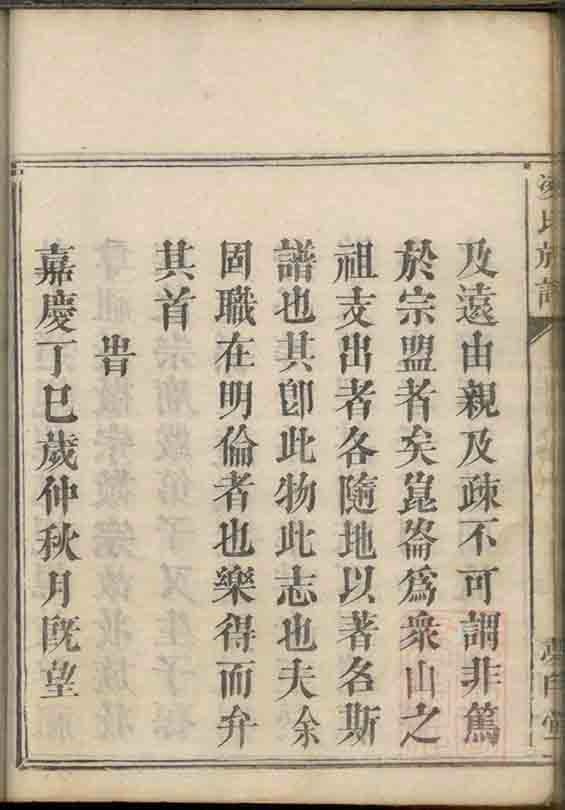 及遠由親及疎不可謂非篤
於宗盟者矣崑崙爲衆山之
祖支出者各隨地以著名斯
譜也其卽此物此志也夫余
固職在明倫者也樂得而弁
其首
旹
嘉慶丁巳歲仲秋月旣望